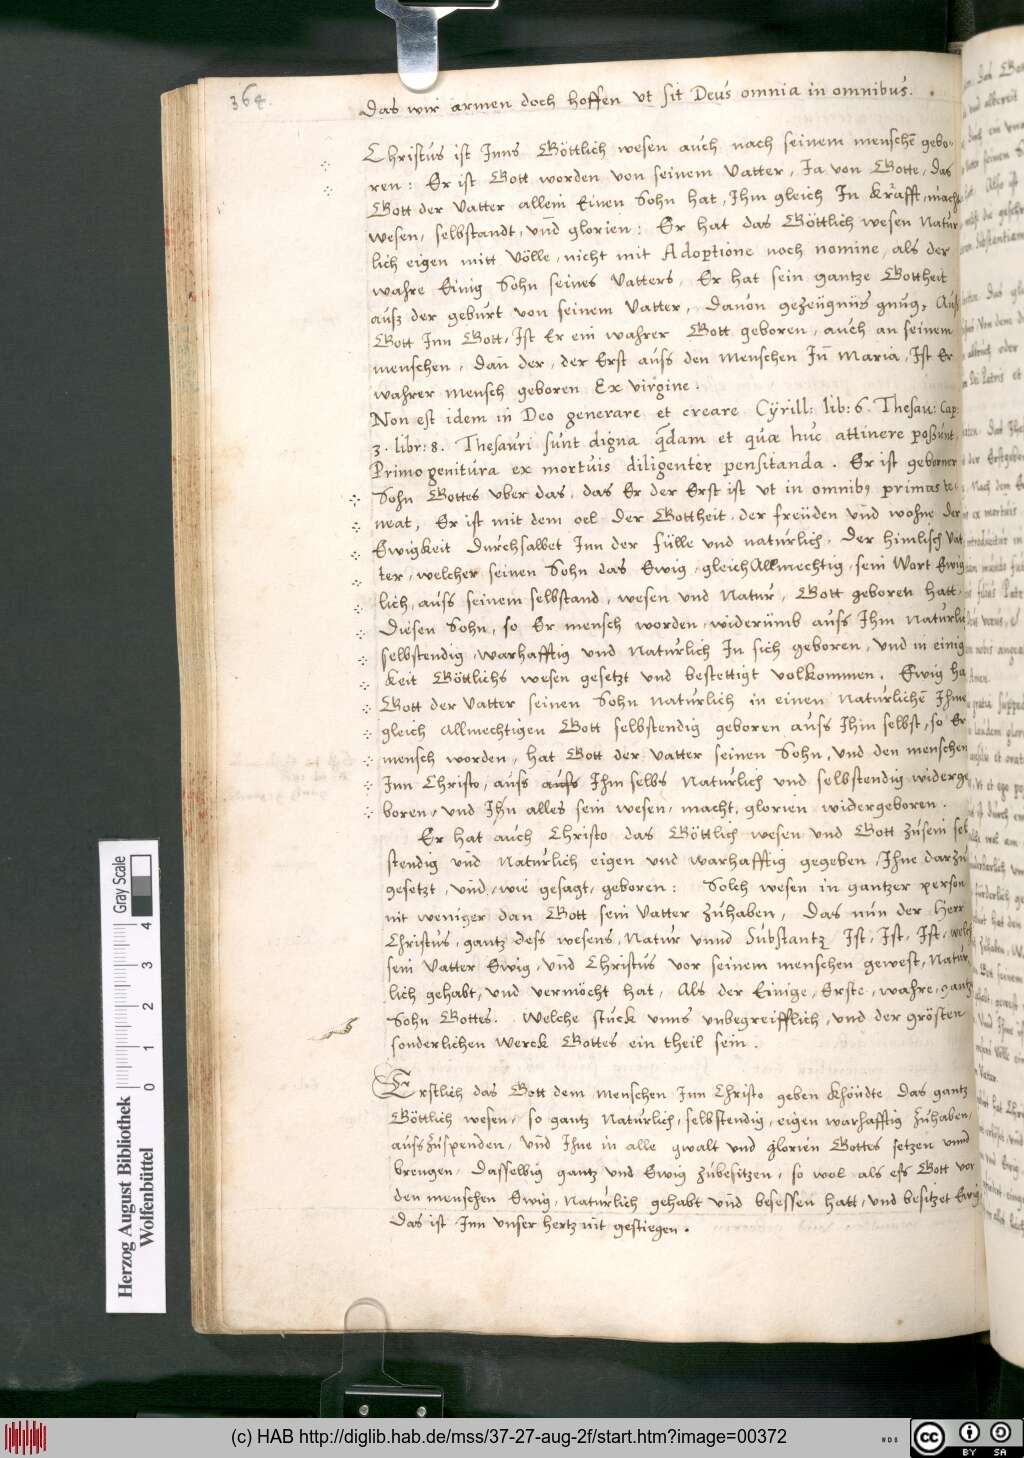 364.
Das wir armen doch hoffen vt sit Deus omnia in omnibus.
Christus ist Inns Göttlich wesen auch nach seinem menschē gebo-
ren: Er ist Gott worden von seinem Vatter, Ia von Gotte, das
Gott der Vatter allein Einen Sohn hat, Ihm gleich In krafft, macht
wesen, selbstandt, vnd glorien: Er hat das Göttlich wesen Natur
lich eigen mitt völle, nicht mit Adoptione noch nomine, als der
wahre Einig Sohn seines Vatters, Er hat sein gantze Gottheit
ausz der geburt von seinem Vatter, Dauon gezeügnüs gnug, Ausz
Gott Inn Gott, Ist Er ein wahrer Gott geboren, auch an seinem
menschen, Dan̄ der, der Erst auss den Menschen In̄ Maria, Ist Er
wahrer mensch geboren Ex virgine.
Non est idem in Deo generare et creare Cÿrill: lib: 6. Thesau: Cap:
3. libr: 8. Thesauri sunt digna q̄dam et quæ huc attinere possunt,
Primogenitura ex mortuis diligenter pensitanda. Er ist geborner
Sohn Gottes vber das, das Er der Erst ist vt in omnibꝰ primas te-
neat, Er ist mit dem oel der Gottheit, der freüden vnd wohne der
Ewigkeit Durchsalbet Inn der fülle vnd naturlich, Der himlisch Vat
ter, welcher seinen Sohn das Ewig, gleich Allmechtig, sein Wort Ewig
lich, auss seinem selbstand, wesen vnd Natur, Gott geboren hatt,
Diesen Sohn, so Er mensch worden, widerümb auss Ihm Naturli
selbstendig, warhafftig vnd Naturlich In sich geboren, vnd in einig
keit Göttlichs wesen gesetzt vnd bestettigt volkommen. Ewig ha
Gott der Vatter seinen Sohn Naturlich in einen Naturlichē Ihme
gleich Allmechtigen Gott selbstendig geboren auss Ihm selbst, so Er
mensch worden, hat Gott der Vatter seinen Sohn, vnd den menschen
Inn Christo, auss auss Ihm selbs Naturlich vnd selbstendig widerge
boren, vnd Ihn alles sein wesen, macht, glorien widergeboren.
Er hat auch Christo das Göttlich wesen vnd Gott zusein sel
stendig vnd Naturlich eigen vnd warhafftig gegeben, Ihne darzu
gesetzt, vnd, wie gesagt, geboren: Solch wesen in gantzer person
nit weniger dan Gott sein Vatter zuhaben, Das nun der Herr
Christus, gantz dess wesens, Natur vnnd Substantz Ist, Ist, Ist, welch
sein Vatter Ewig, vnd Christus vor seinem menschen gewest, Natur
lich gehabt, vnd vermöcht hat, Als der Einige, Erste, wahre, gantz
Sohn Gottes. Welche stuck vnns vnbegreifflich, vnd der grösten
sonderlichen werck Gottes ein theil sein.
Erstlich das Gott dem menschen Inn Christo geben khöndte Das gantz
Göttlich wesen, so gantz Naturlich, selbstendig, eigen warhafftig zuhaben,
ausszuspenden, vnd Ihne in alle gwalt vnd glorien Gottes setzen vnnd
brengen, Dasselbig gantz vnd Ewig zubesitzen, so wol als ess Gott vor
den menschen Ewig, Naturlich gehabt vnd besessen hatt, vnd besitzet Ewig
Das ist Inn vnser hertz nit gestiegen.
Gray Scale
0 1 2 3 4
Herzog August Bibliothek
Wolfenbüttel
(c) HAB http://diglib.hab.de/mss/37-27-aug-2f/start.htm?image=00372
cc BY SA